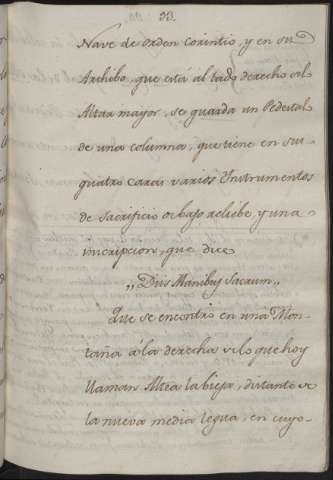 33.
Nave de orden Corintio, y en su
Archibo, que está al lado derecho del
Altar mayor, se guarda un Pedestal
de una columna, que tiene en sus
quatro caras varios Instrumentos
de Sacrificio de bajo reliebe, y una
inscripcion, que dice
,,Diis Manibus Sacrum,,
Que se encontró en una Mon-
taña á la derecha de lo que hoy
llaman Altea la bieja, distante de
la nueva media legua, en cuyo-